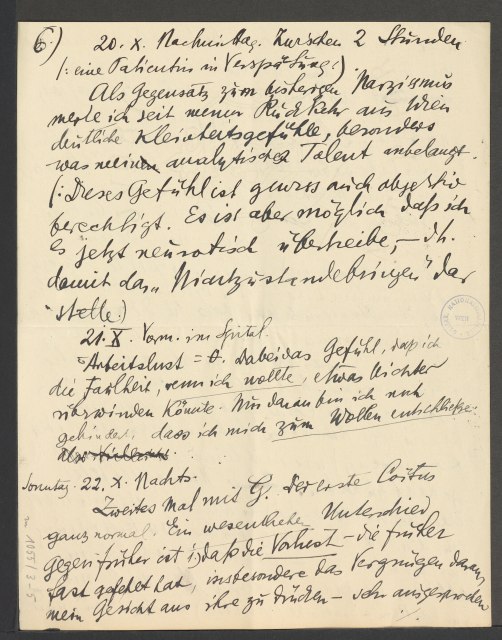 6)
20. X. Nachmittag. Zwischen 2 Stunden
(: eine Patientin in Verspätung :)
Als Gegensatz zum bisherigen Narzissmus
merke ich seit meiner Rückkehr aus Wien
deutliche Kleinheitsgefühle, besonders
was meinen analytisches Talent anbelangt.
(: Dieses Gefühl ist gewiss auch objektiv
berechtigt. Es ist aber möglich daß ich
es jetzt neurotisch übertreibe, – d.h.
damit das „Nichtzustandebringen" dar
stelle :)
21. X. Vorm. im Spital.
Arbeitslust = 0. dabei das Gefühl, daß ich
die Faulheit, wenn ich wollte, etwas leichter
überwinden könnte. Nur daran bin ich noch
gehindert, dass ich mich zum Wollen entschließe.
Sonntag 22. X. Nachts.
Zweites Mal mit G. Der erste Coitus
ganz normal. Ein wesentlicher Unterschied
gegen früher ist, daß die Vorlust – die früher
fast gefehlt hat, insbesondere das Vergnügen daran,
mein Gesicht ans ihre zu drücken – sehr ausgesprochen
1035/3-5